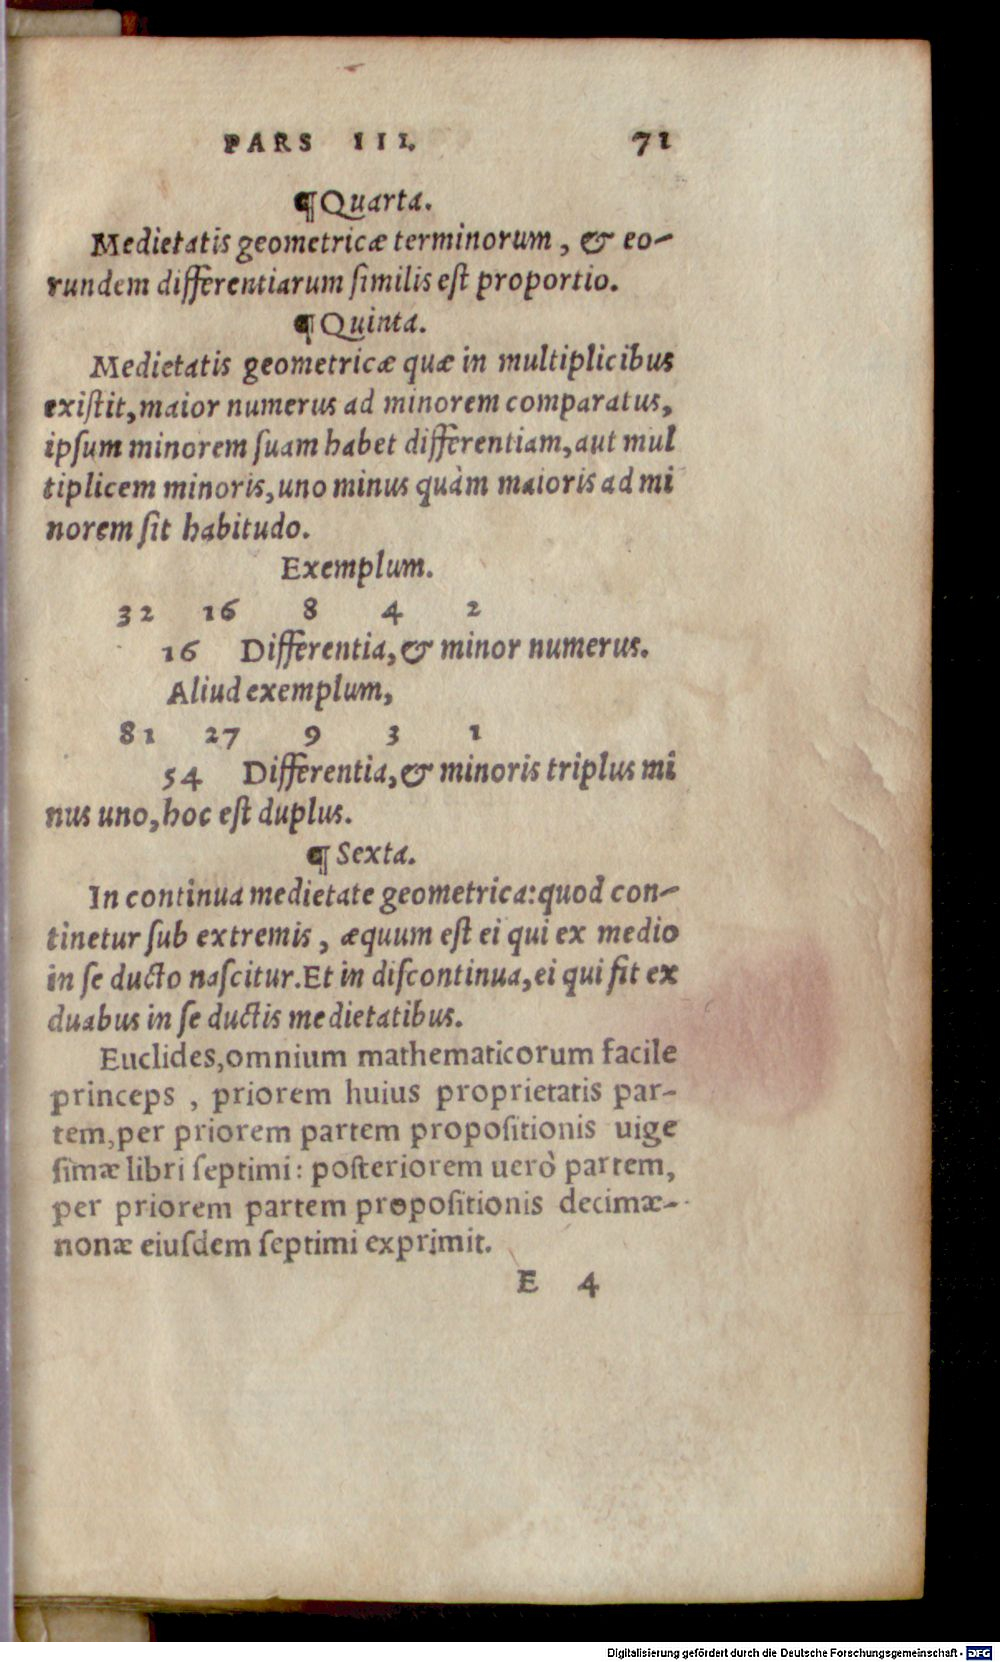 PARS III. 71
¶Quarta.
Medietatis geometricæ terminorum, & eo-
rundem differentiarum ſimilis eſt proportio.
¶Quinta.
Medietatis geometricæ quæ in multiplicibus
exiſtit, maior numerus ad minorem comparatus,
ipſum minorem ſuam habet differentiam, aut mul
tiplicem minoris, uno minus quàm maioris ad mi
norem ſit habitudo.
Exemplum.
32 16 8 4 2
16 Differentia, & minor numerus.
Aliud exemplum,
81 27 9 3 1
54 Differentia, & minoris triplus mi
nus uno, hoc eſt duplus.
¶Sexta.
In continua medietate geometrica: quod con-
tinetur ſub extremis, æquum eſt ei qui ex medio
in ſe ducto naſcitur. Et in diſcontinua, ei qui fit ex
duabus in ſe ductis medietatibus.
Euclides, omnium mathematicorum facile
princeps , priorem huius proprietatis par-
tem, per priorem partem propoſitionis uige
ſimæ libri ſeptimi: poſteriorem uerò partem,
per priorem partem propoſitionis decimæ-
nonæ eiuſdem ſeptimi exprimit.
E 4
Digitalisierung gefördert durch die Deutsche Forschungsgemeinschaft - DFG